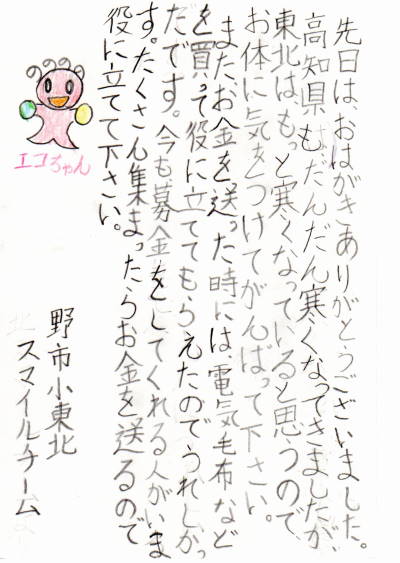 先日は、おはがきありがとうございました。
高知県もだんだん寒くなってきましたが、
東北はもっと寒くなっていると思うので、
お体に気をつけてがんばって下さい。
またお金を送った時には、電気毛布など
を買って役に立ててもらえたのでうれしかっ
たです。今も募金をしてくれる人がいま
す。たくさん集まったらお金を送るので
役に立てて下さい。
エコちゃん
野市小東北
スマイルチーム